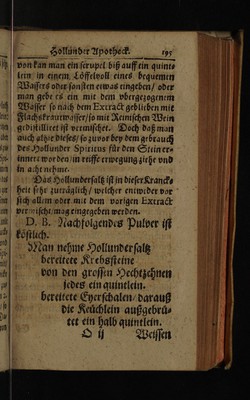 Hollunder Apotheck. 195
von kan man ein scrupel biß auff ein quint-
lein in einem Löffelvoll eines bequemen
Wassers oder sonsten etwas eingeben / oder
man gebe es ein mit dem vbergezogenem
Wasser so nach dem Extract geblieben mit
Flachskrautwasser / so mit Reinischen Wein
gedistilliert ist vermischet. Doch daß man
auch alhie dieses / so zuvor bey dem gebrauch
des Hollunder Spiritus für den Stein er-
innert worden / in reiffe erwegung ziehe vnd
in acht nehme.
Das Hollundersaltz ist in dieser Kranck-
heit sehr zuträglich / welcher entweder vor
sich allem oder mit dem vorigen Extract
vermischt / mag eingegeben werden.
D. B. Nachfolgendes Pulver ist
köstlich.
Man nehme Hollundersaltz
bereitete Krebssteine
von den grossen Hechtzehnen
jedes ein quintlein.
bereitete Eyerschalen / darauß
die Keüchlein außgebrü-
tet ein halb quintlein.
O ij Weissen